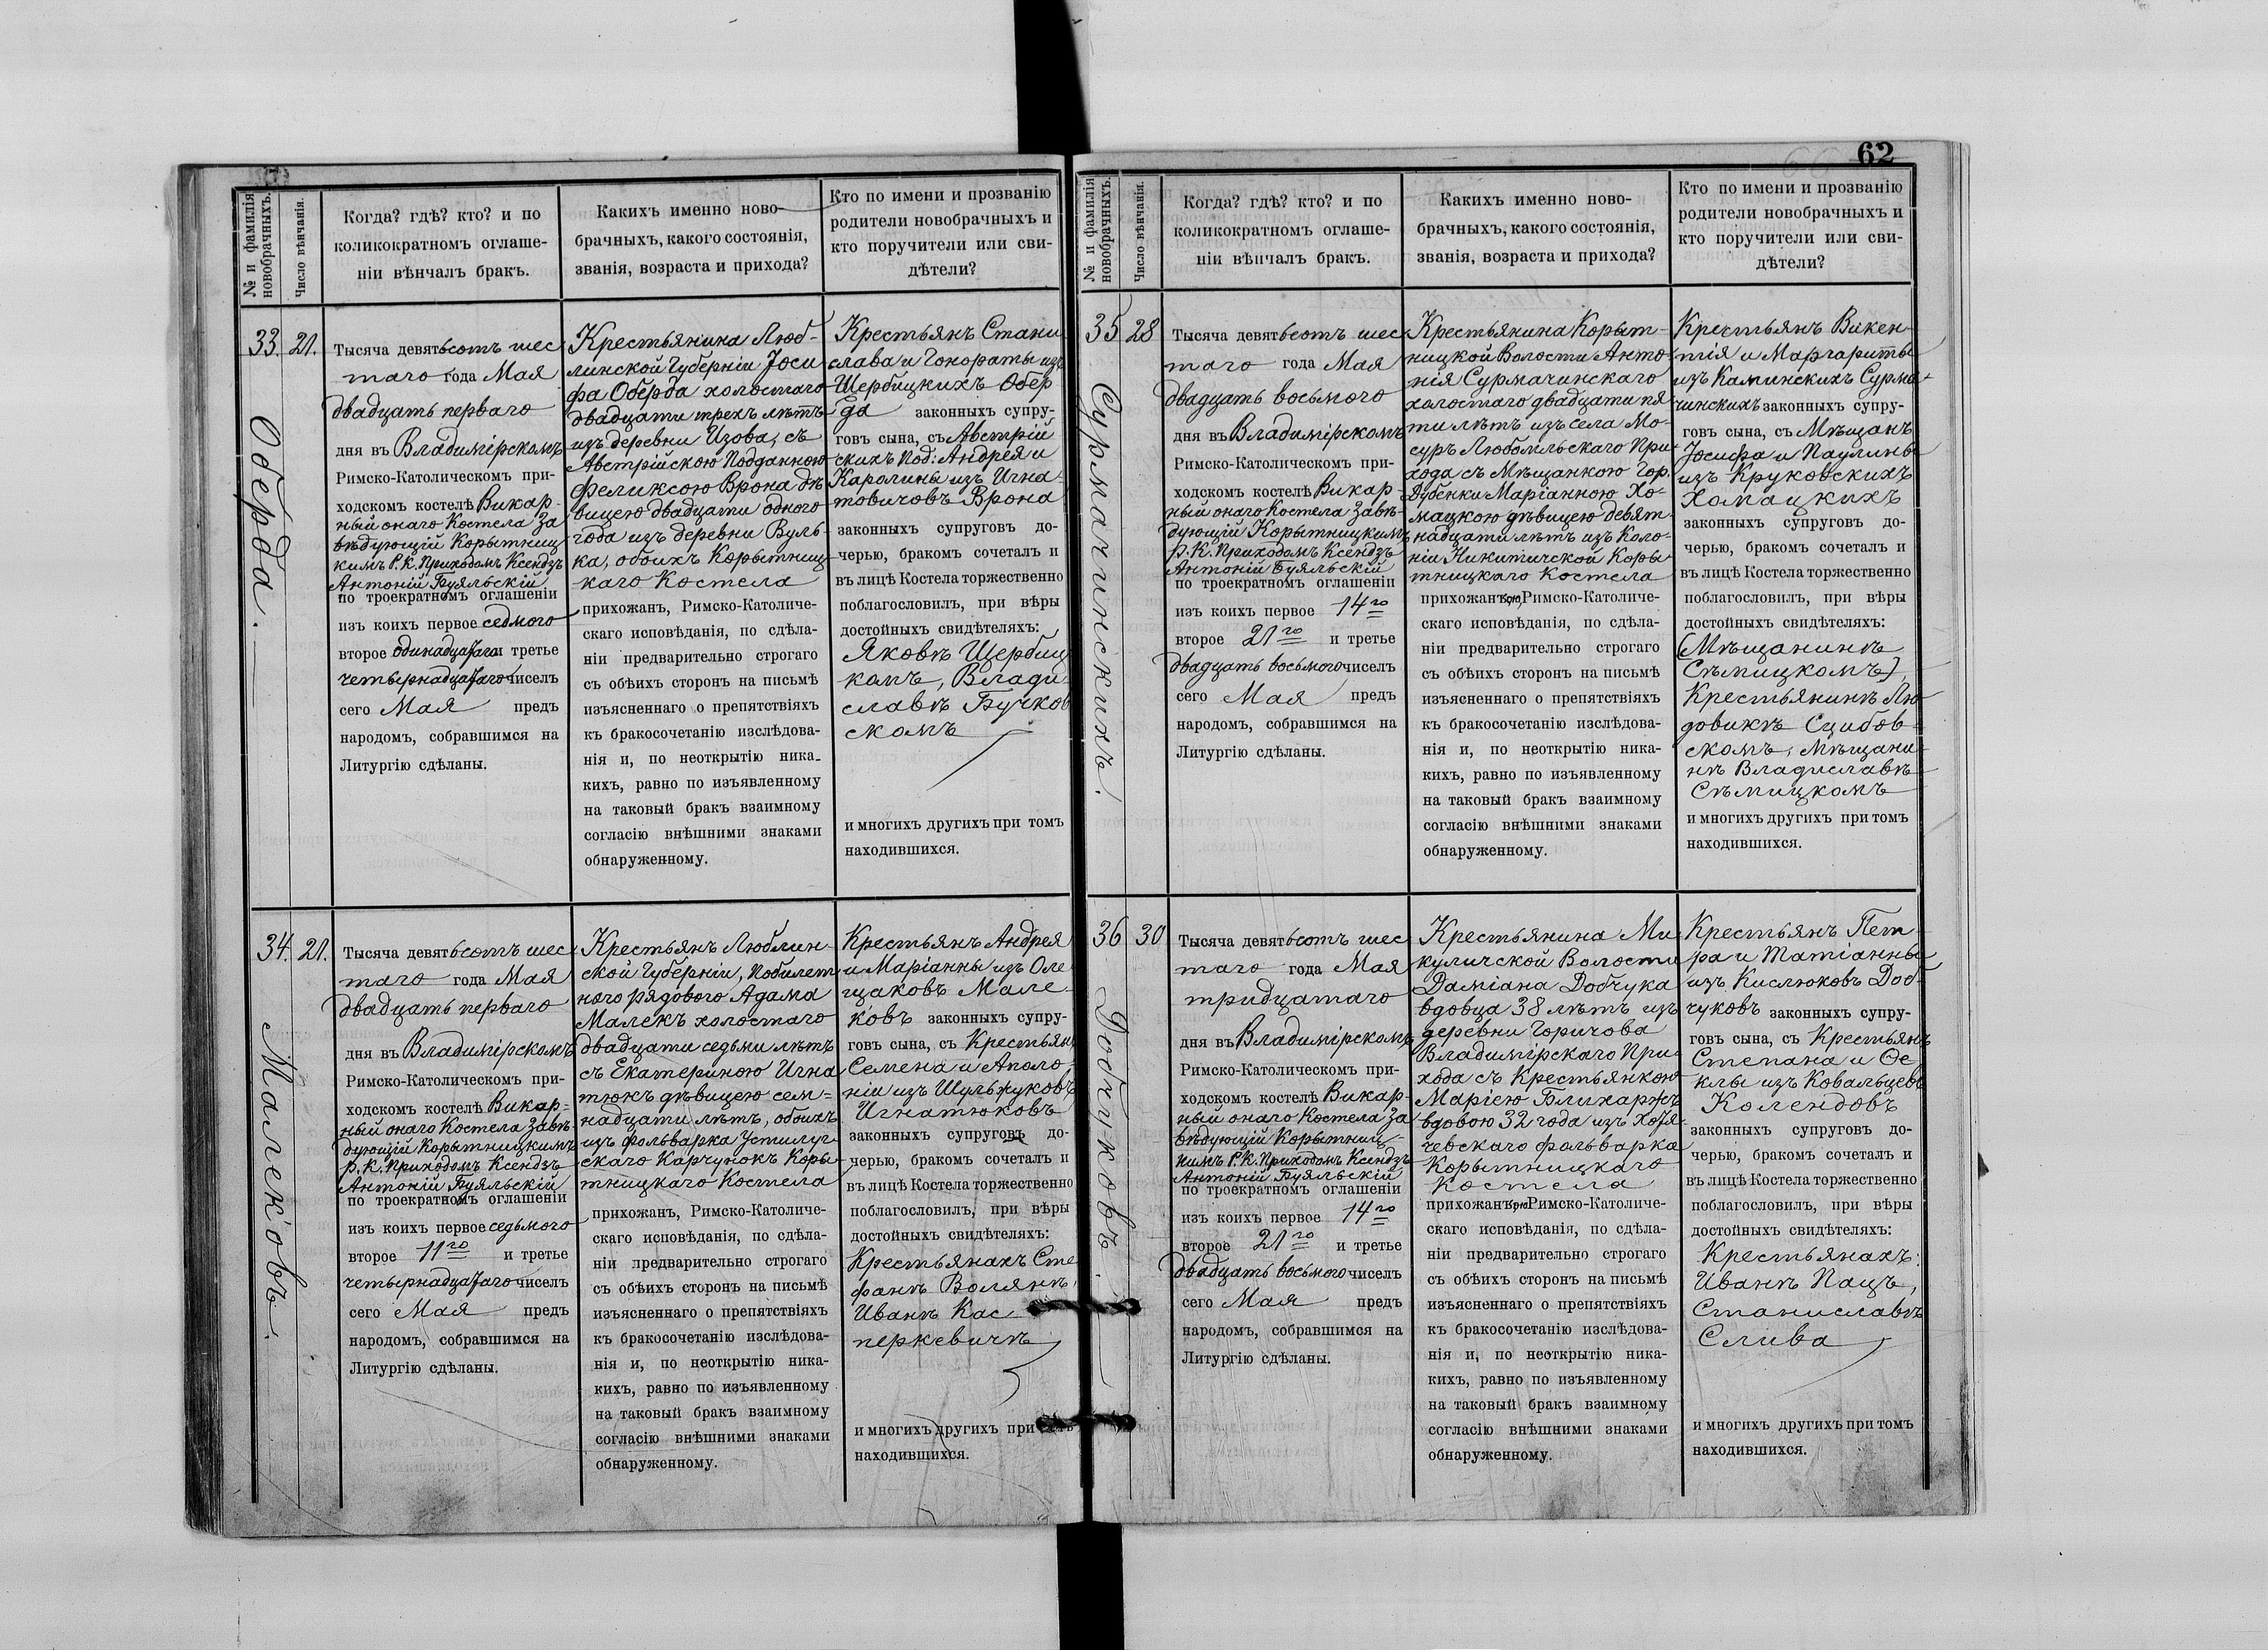 № и фамилія
новобрачныхъ.
Число вѣнчанія.
Когда? гдѣ? кто? и по
коликократномъ оглаше-
ніи вѣнчалъ бракъ.
Какихъ именно ново-
брачныхъ, какого состоянія,
званія, возраста и прихода?
Кто по имени и прозванію
родители новобрачныхъ и
кто поручители или сви-
дѣтели?
33.
21.
Оберда.
Тысяча девятьсотъ шес
таго года Мая
двадцать перваго
дня въ Владимірскомъ
Римско-Католическомъ при-
ходскомъ костелѣ Викар-
ный онаго Костела За
вѣдующій Корытниц
кимъ Р.К. Приходомъ Ксендзъ
Антоній Буяльскій
по троекратномъ оглашеніи
изъ коихъ первое седмого
второе одинадцатаго и третье
четырнадцатаго чиселъ
сего Мая предъ
народомъ, собравшимся на
Литургію сдѣланы.
Крестьянина Люб-
линской Губерніи Іоси
фа Оберда холостаго
двадцати трехъ лѣтъ
изъ деревни Изова, съ
Австрійскою Подданною
Феликсою Врона дѣ
вицею двадцати одного
года изъ деревни Вуль-
ка, обоихъ Корытниц
каго Костела
прихожанъ, Римско-Католиче-
скаго исповѣданія, по сдѣла-
ніи предварительно строгаго
съ обѣихъ сторонъ на письмѣ
изъясненнаго о препятствіяхъ
къ бракосочетанію изслѣдова-
нія и, по неоткрытію ника-
кихъ, равно по изъявленному
на таковый бракъ взаимному
согласію внѣшними знаками
обнаруженному.
Крестьянъ Стани
слава и Гонораты изъ
Щербицкихъ Обер
да законныхъ супру-
говъ сына, съ Австрій
скихъ Под: Андрея и
Каролины изъ Игна-
товичовъ Врона
законныхъ супруговъ до-
черью, бракомъ сочеталъ и
въ лицѣ Костела торжественно
поблагословилъ, при вѣры
достойныхъ свидѣтеляхъ:
Яковѣ Щербиц
комъ, Влади
славѣ Бучков
скомъ
и многихъ другихъ при томъ
находившихся.
34.
21.
Малековъ.
Тысяча девятьсотъ шес
таго года Мая
двадцать перваго
дня въ Владимірскомъ
Римско-Католическомъ при-
ходскомъ костелѣ Викар-
ный онаго Костела Завѣ
дующій Корытницкимъ
Р.К. Приходомъ Ксендзъ
Антоній Буяльскій
по троекратномъ оглашеніи
изъ коихъ первое седьмого
второе 11го и третье
четырнадцатаго чиселъ
сего Мая предъ
народомъ, собравшимся на
Литургію сдѣланы.
Крестьянъ Люблин-
ской Губерніи, Побилет
ного рядового Адама
Малекъ холостаго
двадцати седьми лѣтъ
съ Екатериною Игна
тюкъ дѣвицею сем-
надцати лѣтъ, обоихъ
изъ фольварка Устилуг
скаго Карчунокъ Коры
тницкаго Костела
прихожанъ, Римско-Католиче-
скаго исповѣданія, по сдѣла-
ніи предварительно строгаго
съ обѣихъ сторонъ на письмѣ
изъясненнаго о препятствіяхъ
къ бракосочетанію изслѣдова-
нія и, по неоткрытію ника-
кихъ, равно по изъявленному
на таковый бракъ взаимному
согласію внѣшними знаками
обнаруженному.
Крестьянъ Андрея
и Маріанны изъ Оле
щаковъ Мале-
ковъ законныхъ супру-
говъ сына, съ Крестьян
Семена и Аполо
ніи изъ Шульжуковъ
Игнатюковъ
законныхъ супруговъ до-
черью, бракомъ сочеталъ и
въ лицѣ Костела торжественно
поблагословилъ, при вѣры
достойныхъ свидѣтеляхъ:
Крестьянахъ Сте
фанѣ Волянѣ,
Иванѣ Кас
перкевичѣ
и многихъ другихъ при
находившихся.
62
№ и фамилія
новобрачныхъ.
Число вѣнчанія.
Когда? гдѣ? кто? и по
коликократномъ оглаше-
ніи вѣнчалъ бракъ.
Какихъ именно ново-
брачныхъ, какого состоянія,
званія, возраста и прихода?
Кто по имени и прозванію
родители новобрачныхъ и
кто поручители или сви-
дѣтели?
35
28
Сурмачинскихъ.
Тысяча девятьсотъ шес
таго года Мая
двадцать восьмого
дня въ Владимірскомъ
Римско-Католическомъ при-
ходскомъ костелѣ Викар-
ный онаго Костела Завѣ-
дующій Корытницкимъ
Р.К. Приходомъ Ксендзъ
Антоній Буяльскій
по троекратномъ оглашеніи
изъ коихъ первое 14го
второе 21го и третье
двадцать восьмого чиселъ
сего Мая предъ
народомъ, собравшимся на
Литургію сдѣланы.
Крестьянина Корыт-
ницкой Волости Анто-
нія Сурмачинскаго
холостаго двадцати пя
ти лѣтъ изъ села Мо-
суръ Любомльскаго При
хода съ Мѣщанкою Гор.
Дубенки Маріанною Хо-
мацкою дѣвицею девят-
надцати лѣтъ изъ Коло-
ніи Никитичской Коры
тницкаго Костела
прихожанъ, Римско-Католиче-
скаго исповѣданія, по сдѣла-
ніи предварительно строгаго
съ обѣихъ сторонъ на письмѣ
изъясненнаго о препятствіяхъ
къ бракосочетанію изслѣдова-
нія и, по неоткрытію ника-
кихъ, равно по изъявленному
на таковый бракъ взаимному
согласію внѣшними знаками
обнаруженному.
Крестьянъ Викен-
тія и Маргариты
изъ Каминскихъ Сурма-
чинскихъ законныхъ супру-
говъ сына, съ Мѣщанъ
Іосифа и Паулины
изъ Круковскихъ
Хомацкихъ
законныхъ супруговъ до-
черью, бракомъ сочеталъ и
въ лицѣ Костела торжественно
поблагословилъ, при вѣры
достойныхъ свидѣтеляхъ:
(Мѣщанинѣ
Сѣмицкомъ),
Крестьянинѣ Лю
довикѣ Сцибов-
скомъ, Мѣщани-
нѣ Владиславѣ
Сѣмицкомъ
и многихъ другихъ при томъ
находившихся.
36
30
Добчуковъ.
Тысяча девятьсотъ шес
таго года Мая
тридцатаго
дня въ Владимірскомъ
Римско-Католическомъ при-
ходскомъ костелѣ Викар-
ный онаго Костела За
вѣдующій Корытниц-
кимъ Р.К. Приходомъ Ксендзъ
Антоній Буяльскій
по троекратномъ оглашеніи
изъ коихъ первое 14го
второе 21го и третье
двадцать восьмого чиселъ
сего Мая предъ
народомъ, собравшимся на
Литургію сдѣланы.
Крестьянина Ми
куличской Волости
Даміана Добчука
вдовца 38 лѣтъ изъ
деревни Горичова
Владимірскаго При
хода съ Крестьянкою
Маріею Блихаржъ
вдовою 32 года изъ Хотя
чевскаго фольварка
Корытницкаго
Костела
прихожанъ, Римско-Католиче-
скаго исповѣданія, по сдѣла-
ніи предварительно строгаго
съ обѣихъ сторонъ на письмѣ
изъясненнаго о препятствіяхъ
къ бракосочетанію изслѣдова-
нія и, по неоткрытію ника-
кихъ, равно по изъявленному
на таковый бракъ взаимному
согласію внѣшними знаками
обнаруженному.
Крестьянъ Пет
ра и Татіанны
изъ Кислюковъ Доб-
чуковъ законныхъ супру-
говъ сына, съ Крестьянъ
Степана и Ѳе
клы изъ Ковальцевъ
Колендовъ
законныхъ супруговъ до-
черью, бракомъ сочеталъ и
въ лицѣ Костела торжественно
поблагословилъ, при вѣры
достойныхъ свидѣтеляхъ:
Крестьянахъ:
Иванѣ Пацъ,
Станиславѣ
Слива
и многихъ другихъ при томъ
находившихся.